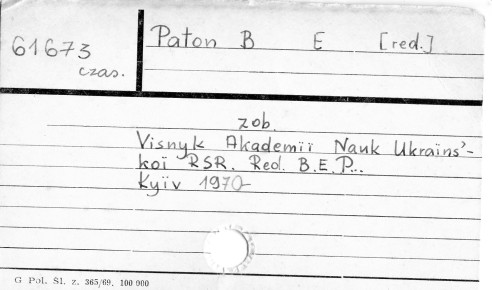 Paton B E [red.]
61673
czas.
zob.
Visnyk Akademiï Nauk Ukraïns'-
koï RSR. Red. B.E.P...
Kyïv 1970-
G Pol. Śl. z. 365/69. 100 000